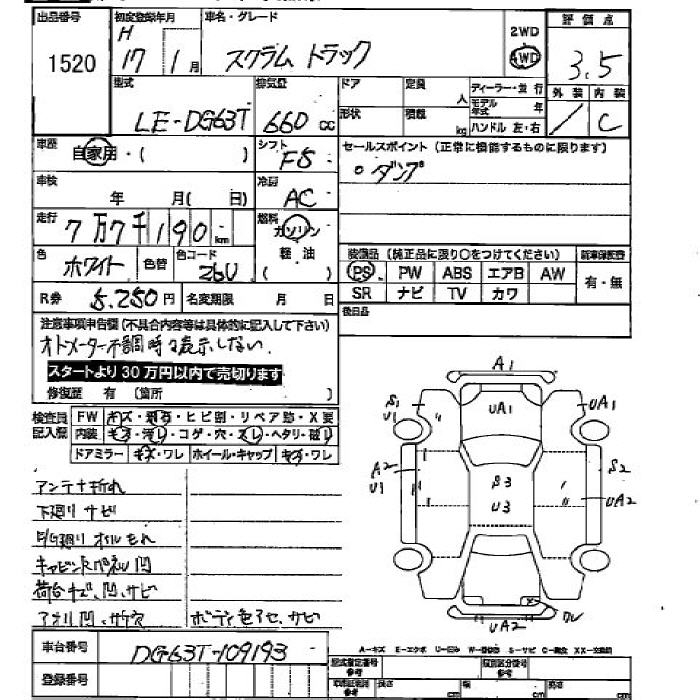 出品番号
1520
初度登録年月
H
17年 1月
車名・グレード
スクラム トラック
2WD
4WD
評価点
3.5
型式
LE-DG63T
排気量
660 cc
ドア
定員
人
形状
積載
kg
ディーラー・並行
モデル年式 年
ハンドル 左・右
外装
内装
C
車歴
自家用・( )
シフト
F5
セールスポイント (正常に機能するものに限ります)
○ダンプ
車検
年 月( 日)
冷房
AC
走行
7万7千190km
燃料
ガソリン
軽油
( )
色
ホワイト
色替
色コード
26U
装備品 (純正品に限り○をつけてください)
新車保証書
PS PW ABS エアB AW
SR ナビ TV カワ
有・無
R券 5.250円
名変期限 月 日
後日品
注意事項申告欄(不具合内容等は具体的に記入して下さい)
オドメーター不調時々表示しない.
スタートより30万円以内で売切ります
修復歴 有 (箇所 )
検査員
記入欄
FW キズ・飛石・ヒビ割・リペア跡・X要
内装 キズ・汚レ・コゲ・穴・スレ・ヘタリ・破レ
ドアミラー キズ・ワレ ホイール・キャップ キズ・ワレ
アンテナ折れ
下廻り サビ
E/G廻り オイルもれ
キャビンRパネル凹
荷台キズ、凹、サビ
アオリ凹、サケ穴
ボディ色アセ、サビ
A1
S1
U1
UA1
UA1
A2
U1
S3
U3
S2
UA2
UA2
車台番号
DG63T-109193
登録番号
A-キズ E-エクボ U-凹み W-補修跡 S-サビ C-腐食 XX-交換済
型式指定番号
参考
類別区分番号
参考
長さ
cm
幅
cm
高さ
cm